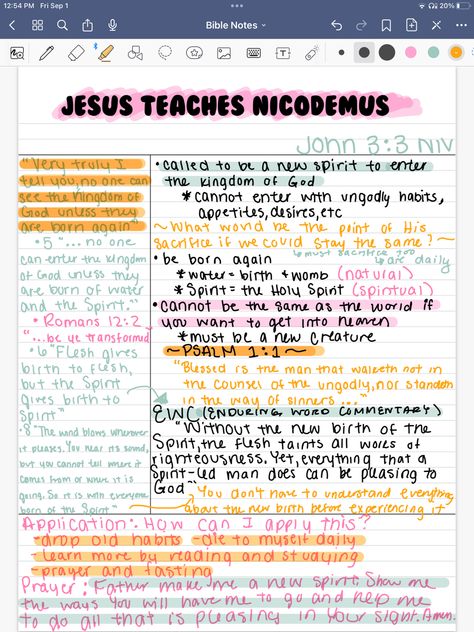 12:54 PM Fri Sep 1
20%
Bible Notes
JESUS TEACHES NICODEMUS
John 3:3 NIV
"Very truly I
tell you, no one can
see the Kingdom of
God unless they
are born again"
• 5 "... no one
can enter the kingdom
of God unless they
are born of water
and the Spirit."
• Romans 12:2
"...be ye transformed"
• 6 "Flesh gives
birth to flesh,
but the Spirit
gives birth to
Spirit"
• 8 "The wind blows wherever
it pleases. You hear its sound,
but you cannot tell where it
comes from or where it is
going. So it is with everyone
born of the Spirit"
• called to be a new spirit to enter
the kingdom of God
* cannot enter with ungodly habits,
appetites, desires, etc
~ What would be the point of His
sacrifice if we could stay the same? ~
must sacrifice too
• be born again
die daily
* water = birth & womb (natural)
* Spirit = the Holy Spirit (spiritual)
• cannot be the same as the world if
you want to get into heaven
* must be a new creature
~ PSALM 1:1 ~
"Blessed is the man that walketh not in
the counsel of the ungodly, nor standeth
in the way of sinners ..."
EWC (ENDURING WORD COMMENTARY)
"Without the new birth of the
Spirit, the flesh taints all works of
righteousness. Yet, everything that a
Spirit-led man does can be pleasing to
God"
You don't have to understand everything
about the new birth before experiencing it
Application: How can I apply this?
- drop old habits - die to myself daily
- learn more by reading and studying
- prayer and fasting
Prayer: Father make me a new spirit. Show me
the ways you will have me to go and help me
to do all that is pleasing in Your sight. Amen.